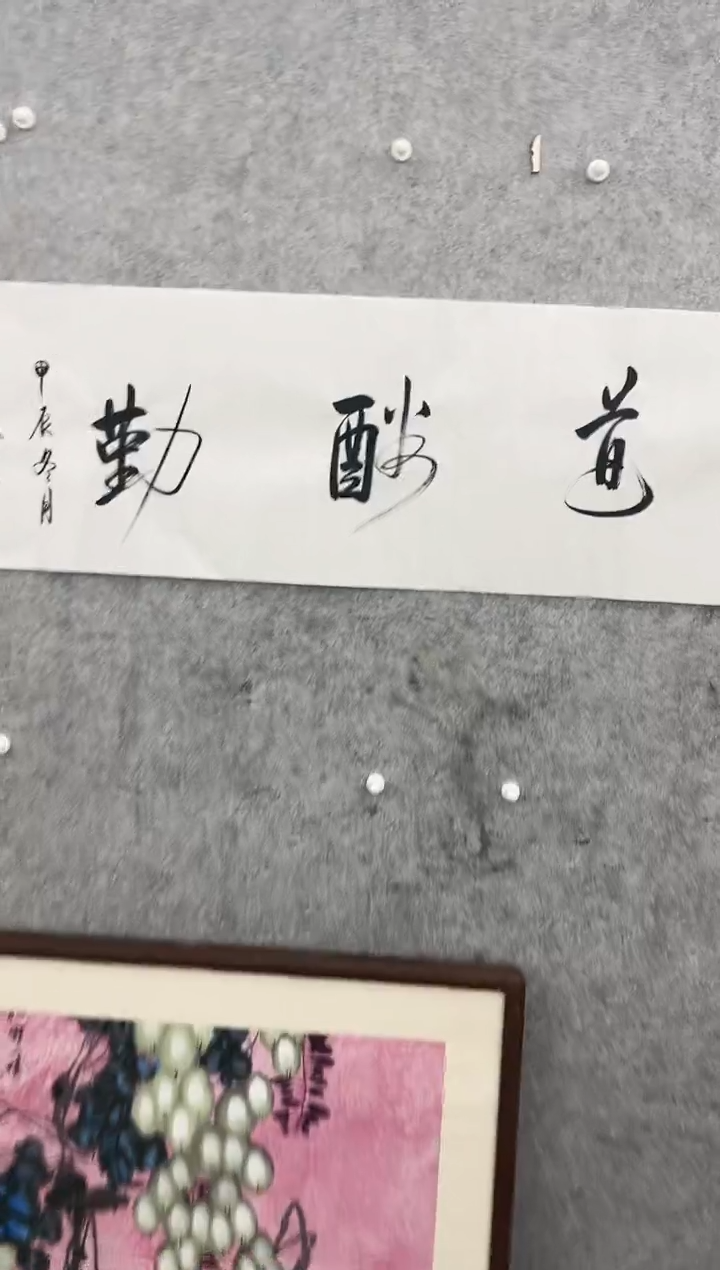 道酬勤
甲辰冬月